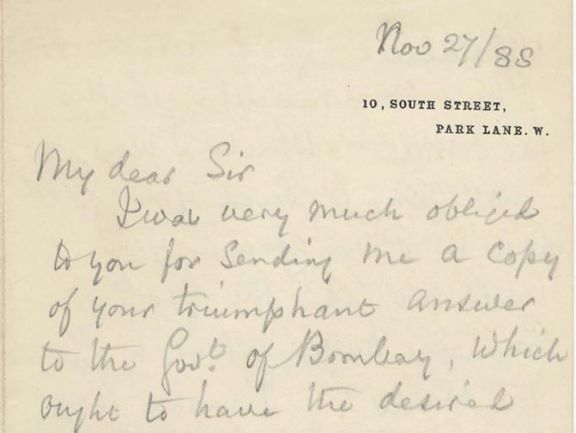 Nov 27/88
10, SOUTH STREET,
PARK LANE. W.
My dear Sir
I was very much obliged
to you for sending me a copy
of your triumphant answer
to the Govt. of Bombay, which
ought to have the desired